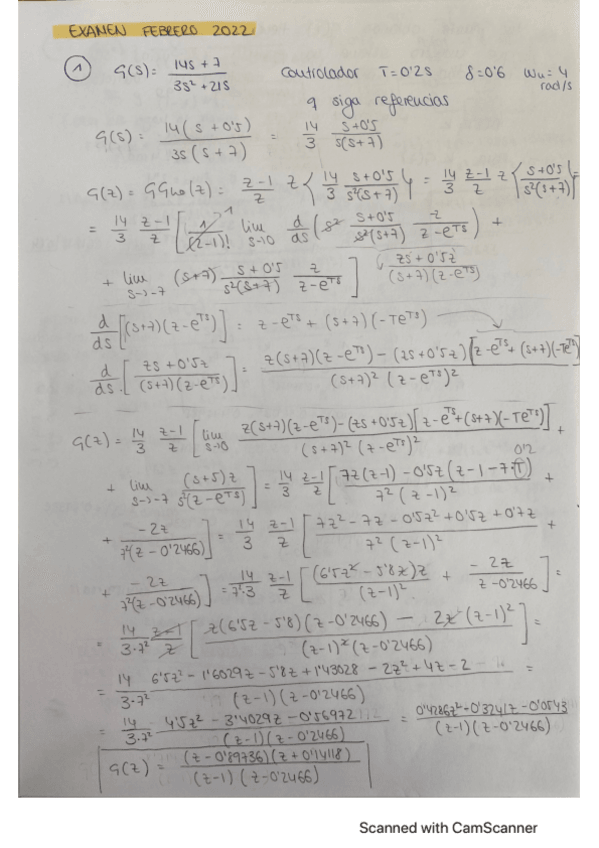 EXAMEN FEBRERO 2022
① G(s) = (14s + 7)/(3s² + 21s) controlador T=0'2s δ=0'6 Wn=4 rad/s
q siga referencias
G(s) = 14(s + 0'5)/(3s(s + 7)) = 14/3 (s+0'5)/(s(s+7))
G(z) = GGho(z) = (z-1)/z Z{14/3 (s+0'5)/(s²(s+7))} = 14/3 (z-1)/z Z{(s+0'5)/(s²(s+7))} =
= 14/3 (z-1)/z [1/(2-1)! lim s→0 d/ds (s² (s+0'5)/(s²(s+7)) z/(z-e^Ts)) +
+ lim s→-7 (s+7) (s+0'5)/(s²(s+7)) z/(z-e^Ts)] (zs+0'5z)/((s+7)(z-e^Ts))
d/ds [(s+7)(z-e^Ts)] = z-e^Ts + (s+7)(-Te^Ts)
d/ds [(zs+0'5z)/((s+7)(z-e^Ts))] = (z(s+7)(z-e^Ts) - (zs+0'5z)[z-e^Ts + (s+7)(-Te^Ts)])/((s+7)² (z-e^Ts)²)
G(z) = 14/3 (z-1)/z [lim s→0 (z(s+7)(z-e^Ts) - (zs+0'5z)[z-e^Ts+(s+7)(-Te^Ts)])/((s+7)² (z-e^Ts)²) +
+ lim s→-7 (s+5)z/(s²(z-e^Ts))] = 14/3 (z-1)/z [(7z(z-1) - 0'5z(z-1-7·T))/(7² (z-1)²) + 0'2
+ -2z/(7²(z-0'2466))] = 14/3 (z-1)/z [(7z²-7z-0'5z²+0'5z+0'7z)/(7² (z-1)²) +
+ -2z/(7²(z-0'2466))] = 14/(7²·3) (z-1)/z [(6'5z - 5'8)z/(z-1)² + -2z/(z-0'2466)] =
= 14/(3·7²) (z-1)/z [(z(6'5z-5'8)(z-0'2466) - 2z(z-1)²)/((z-1)²(z-0'2466))] =
= 14/(3·7²) (6'5z² - 1'6029z - 5'8z + 1'43028 - 2z² + 4z - 2)/((z-1)(z-0'2466)) =
= 14/(3·7²) (4'5z² - 3'4029z - 0'56972)/((z-1)(z-0'2466)) = (0'4286z² - 0'3241z - 0'0543)/((z-1)(z-0'2466))
G(z) = (z-0'89736)(z+0'14118)/((z-1)(z-0'2466))
Scanned with CamScanner